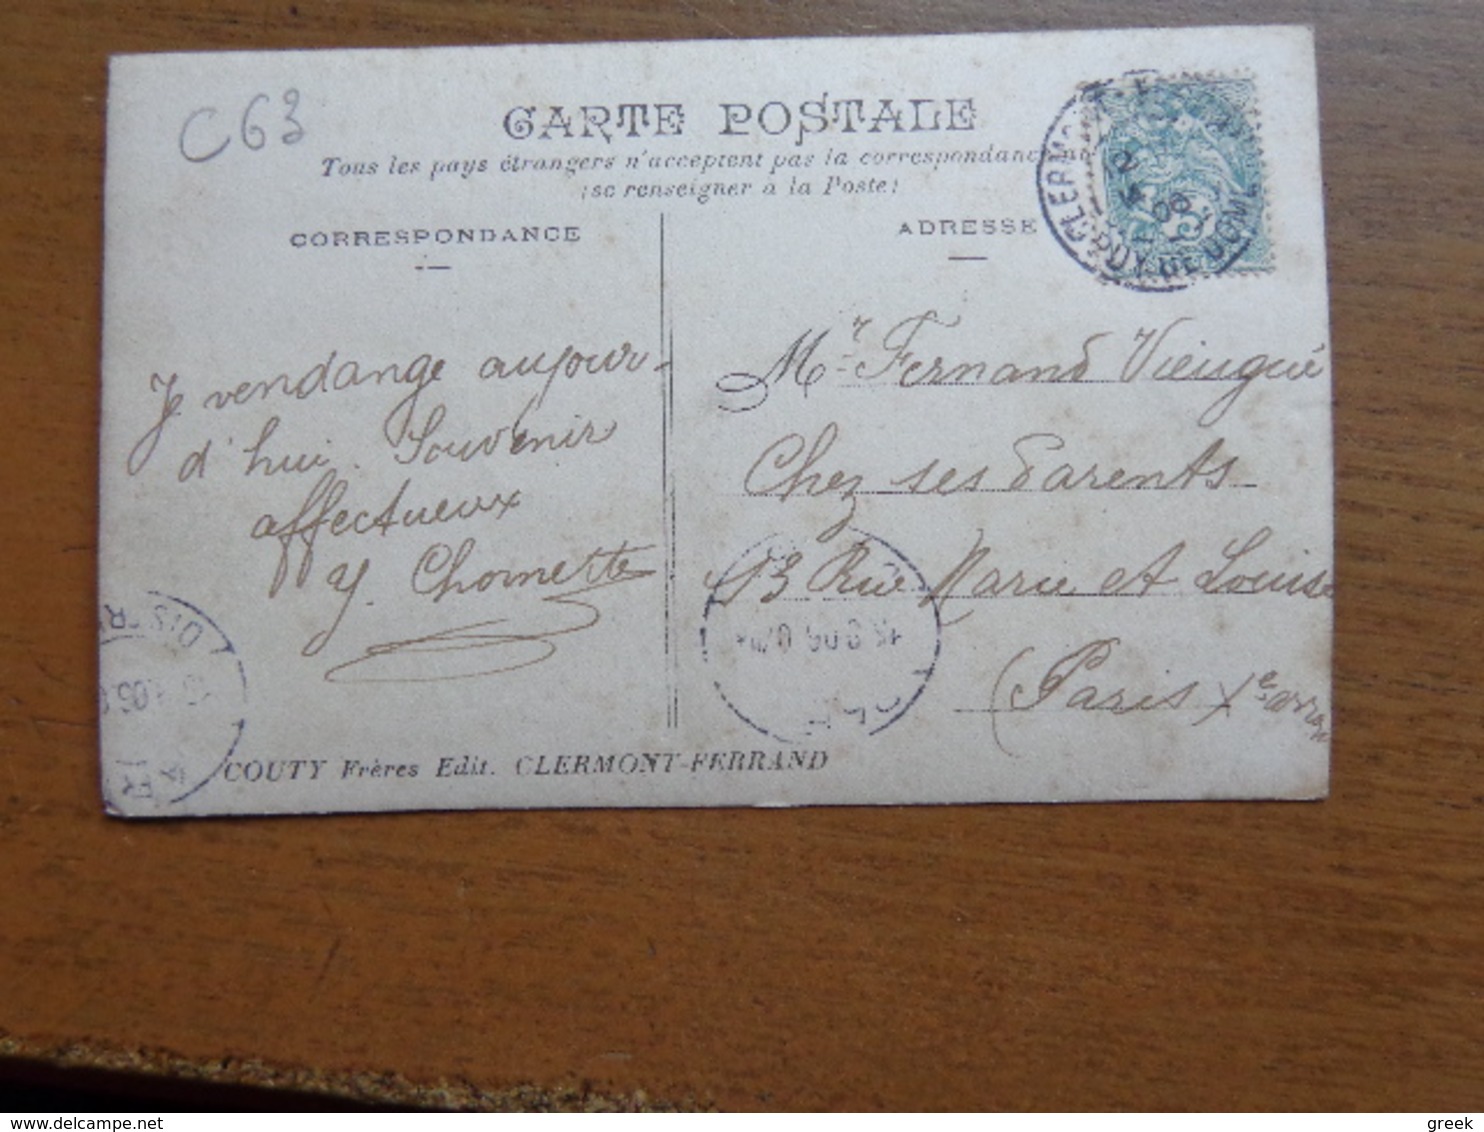 C63
CARTE POSTALE
Tous les pays étrangers n'acceptent pas la correspondanc
(se renseigner à la Poste)
CORRESPONDANCE
ADRESSE
CLERMO
PUY DE DOME
Je vendange aujour-
d'hui. Souvenir
affectueux
Y. Chomette
Mr Fernand Vieugué
Chez ses Parents
13 Rue Marie et Louise
(Paris Xe arron
DISTR
COUTY Frères Edit. CLERMONT-FERRAND
greek